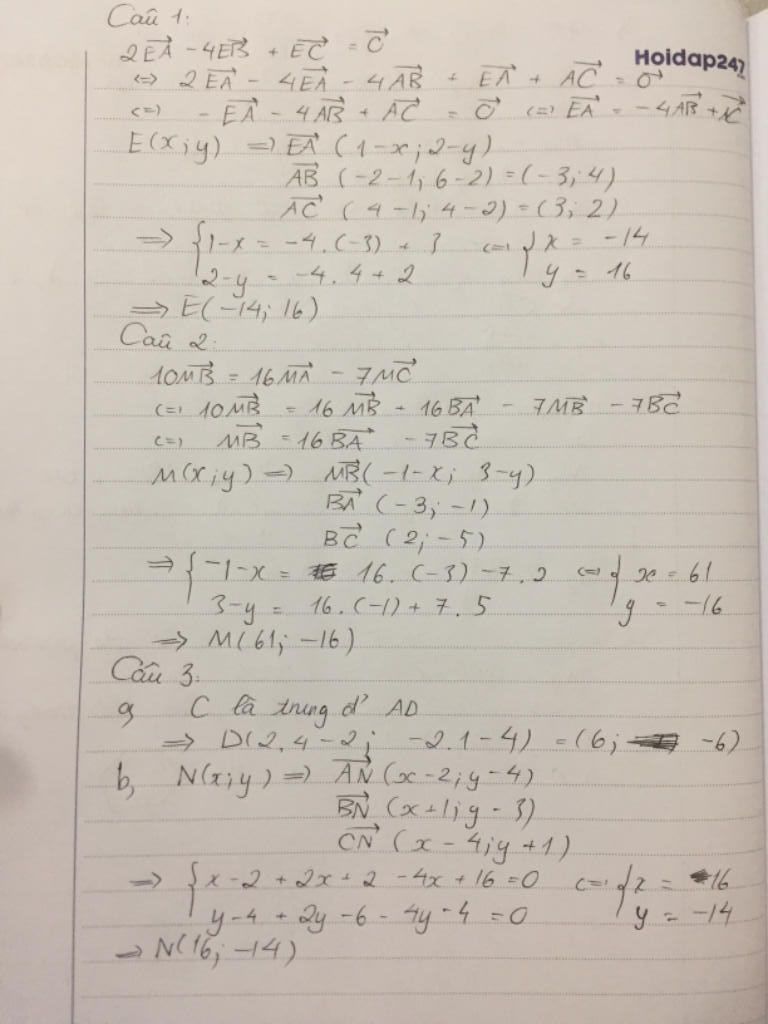 Câu 1:
2EA→ - 4EB→ + EC→ = O→
Hoidap247
<=> 2EA→ - 4EA→ - 4AB→ + EA→ + AC→ = O→
<=> - EA→ - 4AB→ + AC→ = O→ <=> EA→ = -4AB→ + AC→
E(x;y) => EA→ (1-x; 2-y)
AB→ (-2-1; 6-2) = (-3; 4)
AC→ (4-1; 4-2) = (3; 2)
=> { 1-x = -4.(-3) + 3 <=> { x = -14
2-y = -4.4 + 2 y = 16
=> E(-14; 16)
Câu 2:
10MB→ = 16MA→ - 7MC→
<=> 10MB→ = 16MB→ + 16BA→ - 7MB→ - 7BC→
<=> MB→ = 16BA→ - 7BC→
M(x;y) => MB→(-1-x; 3-y)
BA→ (-3; -1)
BC→ (2; -5)
=> { -1-x = 16.(-3) - 7.2 <=> { x = 61
3-y = 16.(-1) + 7.5 y = -16
=> M(61; -16)
Câu 3:
a, C là trung đ' AD
=> D(2.4-2; -2.1-4) = (6; -6)
b, N(x;y) => AN→ (x-2; y-4)
BN→ (x+1; y-3)
CN→ (x-4; y+1)
=> { x-2 + 2x+2 - 4x+16 = 0 <=> { x = 16
y-4 + 2y-6 - 4y-4 = 0 y = -14
=> N(16; -14)